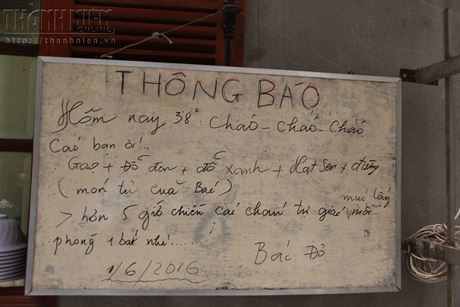 THANH NIEN
ONLINE
http://thanhnien.vn
THÔNG BÁO
Hôm nay 38°: Cháo - Cháo - Cháo
Các bạn ơi!..
Gạo + Đỗ đen + đỗ xanh + Hạt Sen + đường
(món tủ của Bác)
> hơn 5 giờ chiều các cháu tự giác múc lấy mỗi
phòng 1 bát nhé.....!
Bác Đỏ
1/6/2016